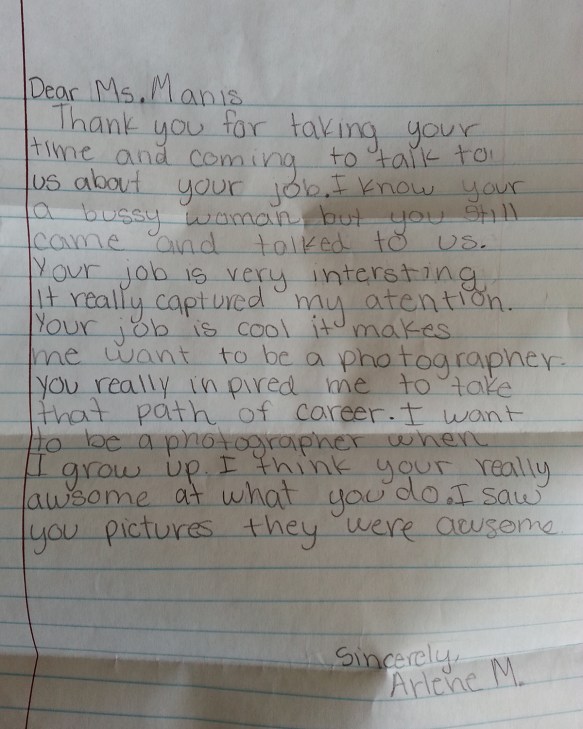 Dear Ms. Manis
Thank you for taking your
time and coming to talk to
us about your job. I know your
a bussy woman, but you still
came and talked to us.
Your job is very intersting
It really captured my atention.
Your job is cool it makes
me want to be a photographer.
you really inpired me to take
that path of career. I want
to be a photographer when
I grow up. I think your really
awsome at what you do. I saw
you pictures they were awsome.
Sincerely,
Arlene M.